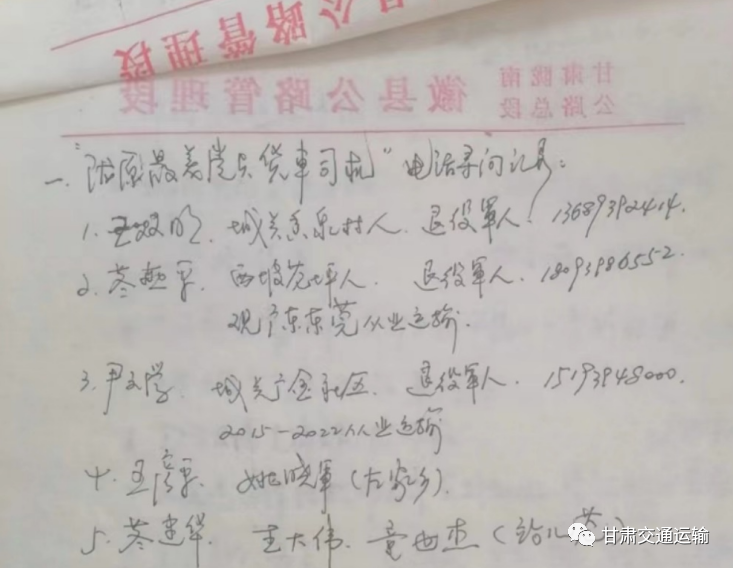 公路管理段
甘肃陇南
公路总段 徽县公路管理段
一."陇原最美党员货车司机"电话寻问记录:
1. 王 明. 城关 泉村人. 退役军人. 13689392414.
2. 苍 平. 西坡 坪人. 退役军人. 18093986552.
现广东东莞从业运输.
3. 尹文学. 城关广金社区. 退役军人. 15193948000.
2015-2022从业运输
4. 王彦平. 姚晓军(左家乡).
5. 苍建华. 王大伟. 童世杰(
甘肃交通运输